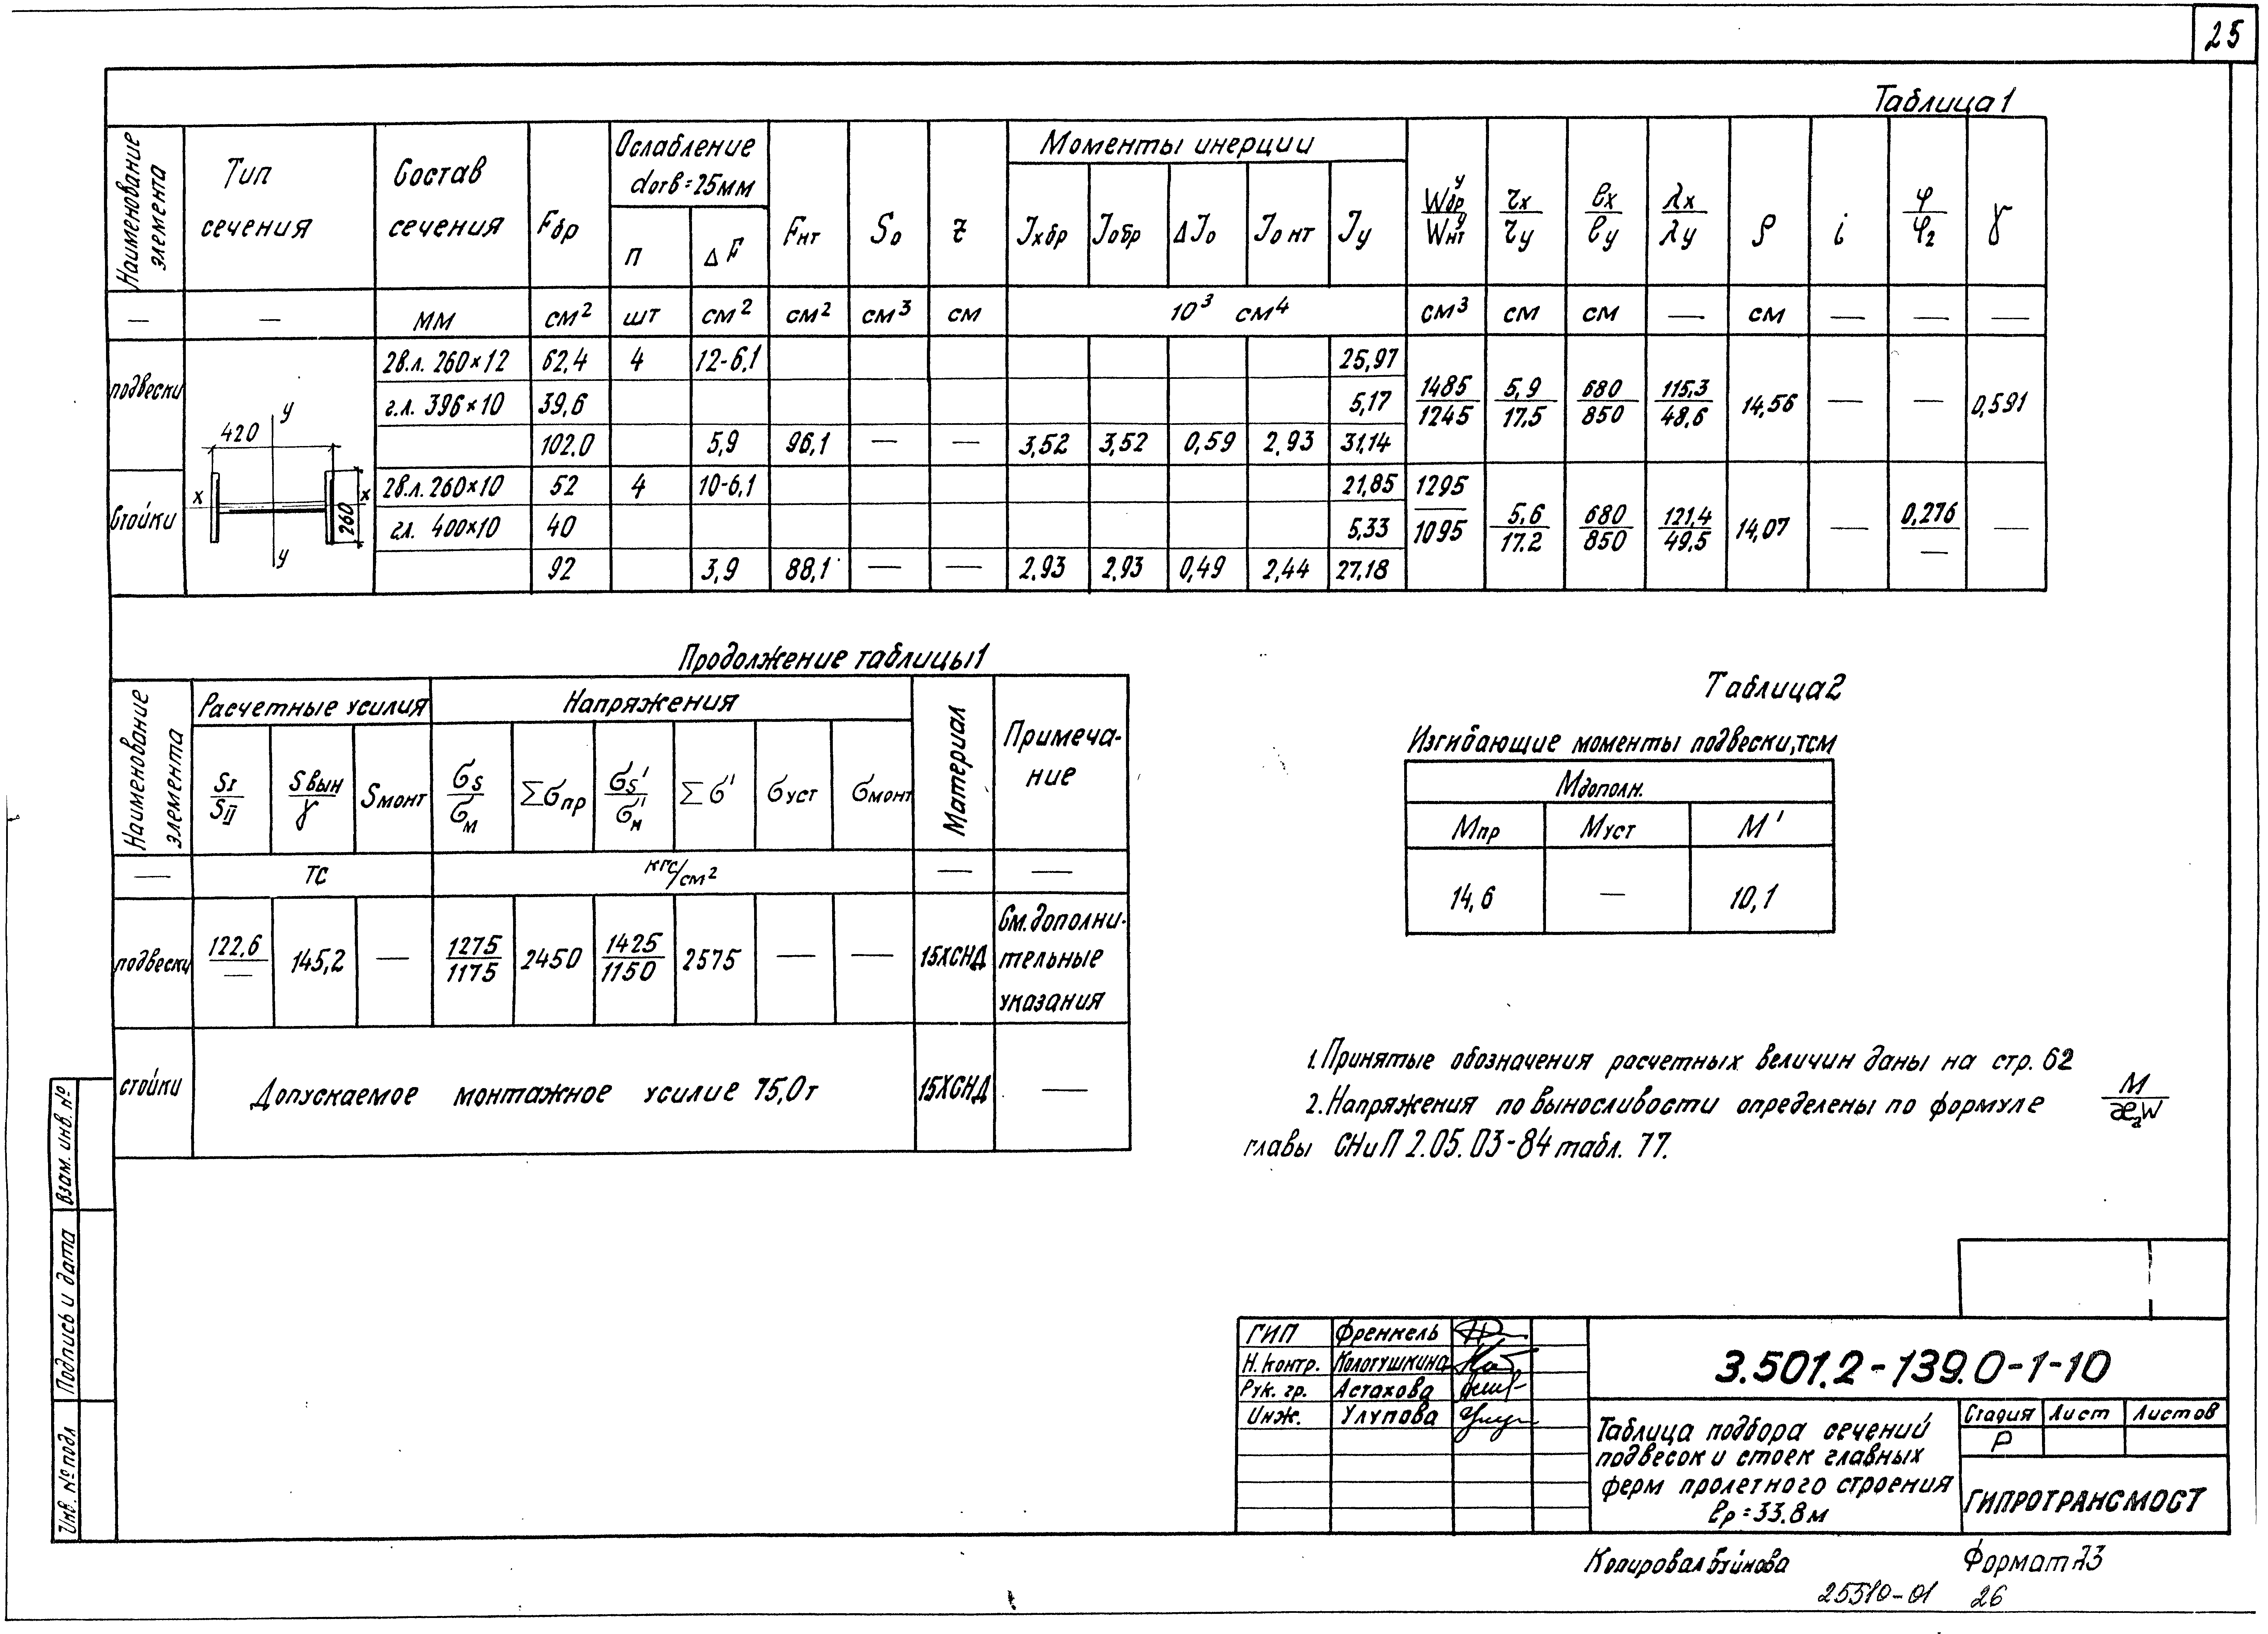 25
Таблица 1
Наименование элемента
Тип сечения
Состав сечения
Fбр
Ослабление dотв=25мм
п
ΔF
Fнт
S₀
z
Моменты инерции
Jхбр
J₀бр
ΔJ₀
J₀нт
Jу
Wбр^у / Wнт^у
τх / τу
ℓх / ℓу
λх / λу
ρ
i
φ / φ₂
γ
— — мм см² шт см² см² см³ см 10³ см⁴ см³ см см — см — — —
подвески
2в.л. 260×12 62,4 4 12-6,1 25,97
г.л. 396×10 39,6 5,17
102,0 5,9 96,1 — — 3,52 3,52 0,59 2,93 31,14
1485/1245 5,9/17,5 680/850 115,3/48,6 14,56 — — 0,591
стойки
2в.л. 260×10 52 4 10-6,1 21,85
г.л. 400×10 40 5,33
92 3,9 88,1 — — 2,93 2,93 0,49 2,44 27,18
1295/1095 5,6/17.2 680/850 121,4/49,5 14,07 — 0,276/— —
420
у
х х
260
у
Продолжение таблицы 1
Наименование элемента
Расчетные усилия
SI / SII
Sвын / γ
Sмонт
Напряжения
σs / σм
Σσпр
σs' / σм'
Σσ'
σуст
σмонт
Материал
Примечание
— тс кгс/см² — —
подвески 122,6/— 145,2 — 1275/1175 2450 1425/1150 2575 — — 15ХСНД См. дополнительные указания
стойки Допускаемое монтажное усилие 75,0т 15ХСНД —
Таблица 2
Изгибающие моменты подвески, тсм
Мдополн.
Мпр Муст М'
14,6 — 10,1
1. Принятые обозначения расчетных величин даны на стр. 62
2. Напряжения по выносливости определены по формуле М/æ₂W
главы СНиП 2.05.03-84 табл. 77.
Взам. инв. №
Подпись и дата
Инв. № подл
ГИП Френкель
Н. контр. Кологушкина
Рук. гр. Астахова
Инж. Улупова
3.501.2-139.0-1-10
Таблица подбора сечений
подвесок и стоек главных
ферм пролетного строения
ℓр=33.8м
Стадия Лист Листов
Р
ГИПРОТРАНСМОСТ
Копировал Формат А3
25510-01 26